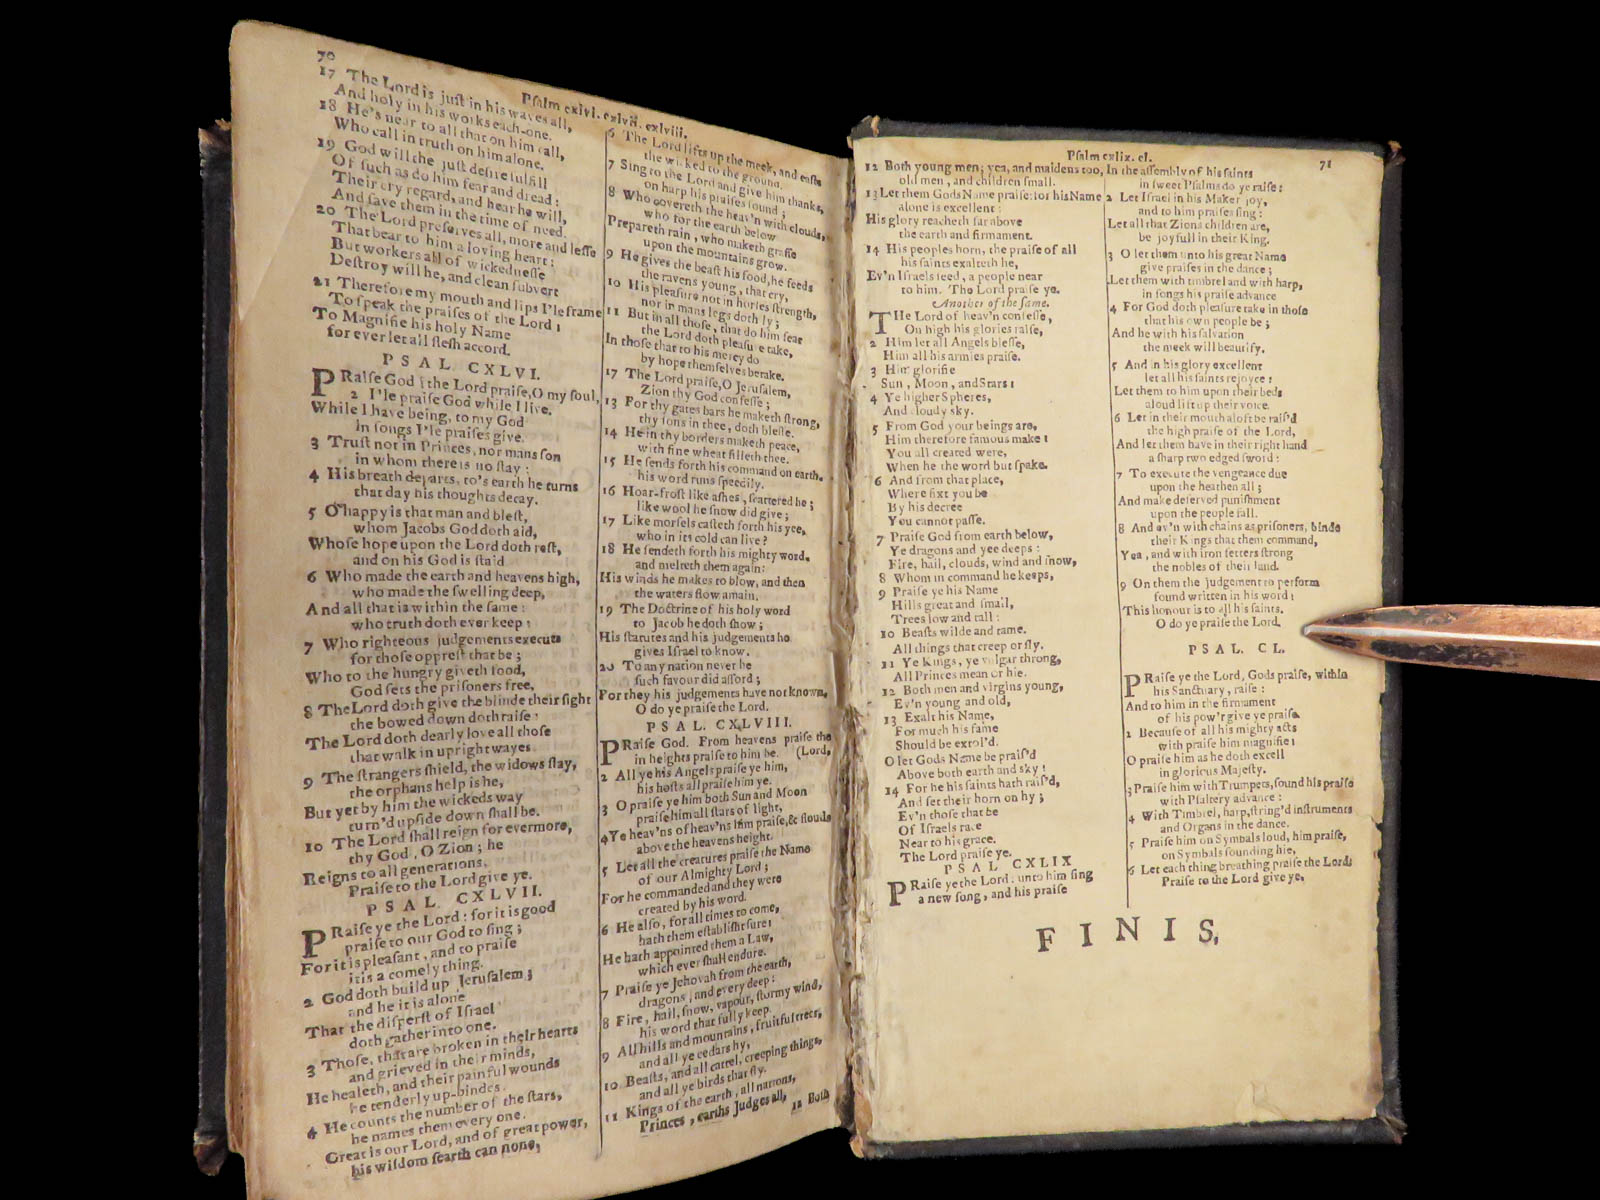 70
Pſalm cxlvi. cxlvii. cxlviii.
17 The Lord is juſt in his wayes all,
And holy in his works each-one.
18 He's near to all that on him call,
Who call in truth on him alone.
19 God will the juſt deſire fulfill
Of ſuch as do him fear and dread:
Their cry regard, and hear he will,
And ſave them in the time of need.
20 The Lord preſerves all, more and leſſe
That bear to him a loving heart:
But workers all of wickedneſſe
Deſtroy will he, and clean ſubvert
21 Therefore my mouth and lips I'le frame
To ſpeak the praiſes of the Lord;
To Magnifie his holy Name
for ever let all fleſh accord.
PSAL CXLVI.
PRaiſe God; the Lord praiſe, O my ſoul,
2 I'le praiſe God while I live.
While I have being, to my God
In ſongs I'le praiſes give.
3 Truſt nor in Princes, nor mans ſon
in whom there is no ſtay:
4 His breath departs, to's earth he turns
that day his thoughts decay.
5 O happy is that man and bleſt,
whom Jacobs God doth aid,
Whoſe hope upon the Lord doth reſt,
and on his God is ſtaid
6 Who made the earth and heavens high,
who made the ſwelling deep,
And all that is within the ſame:
who truth doth ever keep:
7 Who righteous judgements execute
for thoſe oppreſt that be;
Who to the hungry giveth food,
God ſets the priſoners free,
8 The Lord doth give the blinde their ſight
the bowed down doth raiſe:
The Lord doth dearly love all thoſe
that walk in upright wayes
9 The ſtrangers ſhield, the widows ſtay,
the orphans help is he,
But yet by him the wickeds way
turn'd upſide down ſhall be.
10 The Lord ſhall reign for evermore,
thy God, O Zion; he
Reigns to all generations.
Praiſe to the Lord give ye.
PSAL CXLVII.
PRaiſe ye the Lord: for it is good
praiſe to our God to ſing;
For it is pleaſant, and to praiſe
it is a comely thing.
2 God doth build up Jeruſalem;
and he it is alone
That the diſperſt of Iſrael
doth gather into one.
3 Thoſe, that are broken in their hearts
and grieved in their minds,
He healeth, and their painful wounds
he tenderly up-bindes.
4 He counts the number of the ſtars,
he names them every one.
Great is our Lord, and of great power,
his wiſdom ſearth can none,
6 The Lord lifts up the meek, and caſts
the wicked to the ground.
7 Sing to the Lord and give him thanks,
on harp his praiſes ſound;
8 Who covereth the heav'n with clouds,
who for the earth below
Prepareth rain, who maketh graſſe
upon the mountains grow.
9 He gives the beaſt his food, he feeds
the ravens young, that cry,
10 His pleaſure not in horſes ſtrength,
nor in mans legs doth ly;
11 But in all thoſe, that do him fear
the Lord doth pleaſu e take,
In thoſe that to his mercy do
by hope themſelves betake.
17 The Lord praiſe, O Jeruſalem,
Zion thy God confeſſe;
13 For thy gates bars he maketh ſtrong,
thy ſons in thee, doth bleſſe.
14 He in thy borders maketh peace,
with fine wheat filleth thee.
15 He ſends forth his command on earth,
his word runs ſpeedily.
16 Hoar-froſt like aſhes, ſcattered he;
like wool he ſnow did give;
17 Like morſels caſteth forth his yce,
who in its cold can live?
18 He ſendeth forth his mighty word,
and melteth them again:
His winds he makes to blow, and then
the waters flow amain.
19 The Doctrine of his holy word
to Jacob he doth ſhow;
His ſtatutes and his judgements he
gives Iſrael to know.
20 To any nation never he
ſuch favour did afford;
For they his judgements have not known,
O do ye praiſe the Lord.
PSAL. CXLVIII.
PRaiſe God. From heavens praiſe the
in heights praiſe to him be. (Lord,
2 All ye his Angels praiſe ye him,
his hoſts all praiſe him ye.
3 O praiſe ye him both Sun and Moon
praiſe him all ſtars of light,
4 Ye heav'ns of heav'ns him praiſe, & clouds
above the heavens height.
5 Let all the creatures praiſe the Name
of our Almighty Lord;
For he commanded and they were
created by his word.
6 He alſo, for all times to come,
hath them eſtabliſht ſure:
He hath appointed them a Law,
which ever ſhall endure.
7 Praiſe ye Jehovah from the earth,
dragons, and every deep:
8 Fire, hail, ſnow, vapour, ſtormy wind,
his word that fully keep.
9 All hills and mountains, fruitful trees,
and all ye cedars hy,
10 Beaſts, and all cattel, creeping things,
and all ye birds that fly.
11 Kings of the earth, all nations,
Princes, earths Judges all, 12 Both
Pſalm cxlix. cl.
71
12 Both young men; yea, and maidens too,
old men, and children ſmall.
13 Let them Gods Name praiſe: for his Name
alone is excellent:
His glory reacheth far above
the earth and firmament.
14 His peoples horn, the praiſe of all
his ſaints exalteth he,
Ev'n Iſraels ſeed, a people near
to him. The Lord praiſe ye.
Another of the ſame.
THe Lord of heav'n confeſſe,
On high his glories raiſe,
2 Him let all Angels bleſſe,
Him all his armies praiſe.
3 Him glorifie
Sun, Moon, and Stars:
4 Ye higher Spheres,
And cloudy sky.
5 From God your beings are,
Him therefore famous make:
You all created were,
When he the word but ſpake.
6 And from that place,
Where fixt you be
By his decree
You cannot paſſe.
7 Praiſe God from earth below,
Ye dragons and yee deeps:
Fire, hail, clouds, wind and ſnow,
8 Whom in command he keeps,
9 Praiſe ye his Name
Hills great and ſmail,
Trees low and tall:
10 Beaſts wilde and tame.
All things that creep or fly.
11 Ye Kings, ye vulgar throng,
All Princes mean or hie.
12 Both men and virgins young,
Ev'n young and old,
13 Exalt his Name,
For much his fame
Should be extol'd.
O let Gods Name be praiſ'd
Above both earth and sky:
14 For he his ſaints hath raiſ'd,
And ſet their horn on hy;
Ev'n thoſe that be
Of Iſraels race
Near to his grace.
The Lord praiſe ye.
PSAL CXLIX
PRaiſe ye the Lord: unto him ſing
a new ſong, and his praiſe
In the aſſembly of his ſaints
in ſweet Pſalms do ye raiſe:
2 Let Iſrael in his Maker joy,
and to him praiſes ſing:
Let all that Zions children are,
be joyfull in their King.
3 O let them unto his great Name
give praiſes in the dance;
Let them with timbrel and with harp,
in ſongs his praiſe advance
4 For God doth pleaſure take in thoſe
that his own people be;
And he with his ſalvation
the meek will beautify.
5 And in his glory excellent
let all his ſaints rejoyce:
Let them to him upon their beds
aloud lift up their voice.
6 Let in their mouth aloft be raiſ'd
the high praiſe of the Lord,
And let them have in their right hand
a ſharp two edged ſword:
7 To execute the vengeance due
upon the heathen all;
And make deſerved puniſhment
upon the people fall.
8 And ev'n with chains as priſoners, binde
their Kings that them command,
Yea, and with iron fetters ſtrong
the nobles of their land.
9 On them the judgement to perform
found written in his word:
This honour is to all his ſaints.
O do ye praiſe the Lord.
PSAL. CL.
PRaiſe ye the Lord, Gods praiſe, within
his Sanctuary, raiſe:
And to him in the firmament
of his pow'r give ye praiſe.
2 Becauſe of all his mighty acts
with praiſe him magnifie:
O praiſe him as he doth excell
in glorious Majeſty.
3 Praiſe him with Trumpets, ſound his praiſe
with Pſaltery advance:
4 With Timbrel, harp, ſtring'd inſtruments
and Organs in the dance.
5 Praiſe him on Symbals loud, him praiſe,
on Symbals ſounding hie,
6 Let each thing breathing praiſe the Lord:
Praiſe to the Lord give ye,
FINIS.